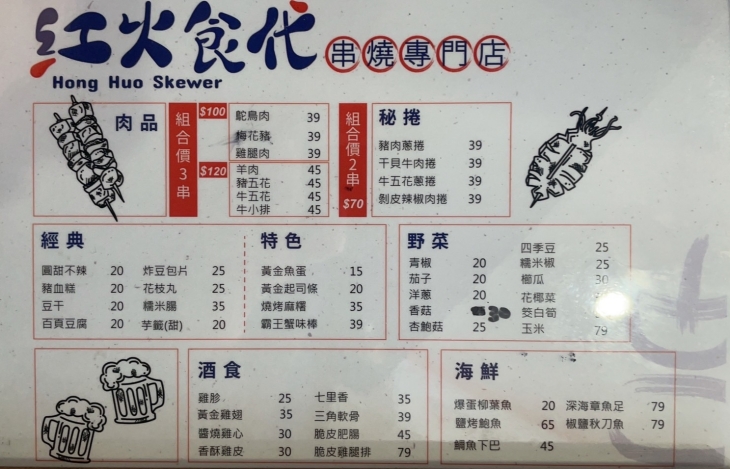 紅火食代 串燒專門店
Hong Huo Skewer
肉品
組合價3串
$100
鴕鳥肉 39
梅花豬 39
雞腿肉 39
$120
羊肉 45
豬五花 45
牛五花 45
牛小排 45
組合價2串
$70
秘捲
豬肉蔥捲 39
干貝牛肉捲 39
牛五花蔥捲 39
剝皮辣椒肉捲 39
經典
圓甜不辣 20 炸豆包片 25
豬血糕 20 花枝丸 25
豆干 20 糯米腸 35
百頁豆腐 20 芋籤(甜) 20
特色
黃金魚蛋 15
黃金起司條 20
燒烤麻糬 35
霸王蟹味棒 39
野菜
青椒 20
茄子 20
洋蔥 20
香菇 30
杏鮑菇 25
四季豆 25
糯米椒 25
櫛瓜 30
花椰菜
筊白筍
玉米 79
酒食
雞胗 25 七里香 35
黃金雞翅 35 三角軟骨 39
醬燒雞心 30 脆皮肥腸 45
香酥雞皮 30 脆皮雞腿排 79
海鮮
爆蛋柳葉魚 20 深海章魚足 79
鹽烤鮑魚 65 椒鹽秋刀魚 79
鯛魚下巴 45